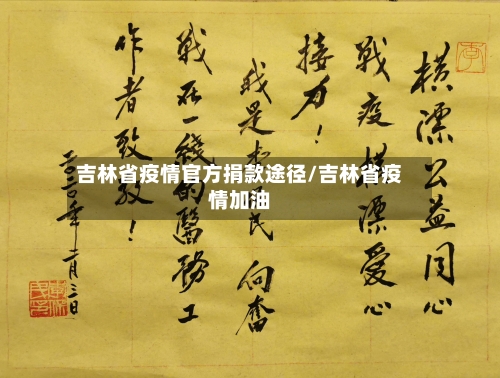 吉林省疫情官方捐款途径/吉林省疫
情加油
横漂公益同心
战疫横漂爱心
接力！
我是民 向奋
战在一线的醫務工
作者致敬！
二〇二〇年二月三日